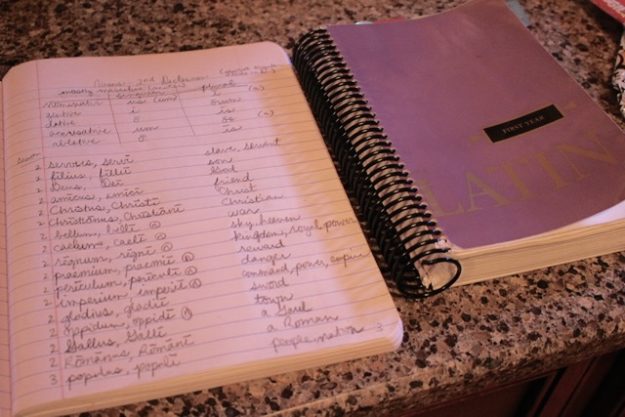 Nouns, 2nd Declension
mostly masculine (neuter)
singular plural
nominative us (um) i (a)
genitive i ōrum
dative ō is
accusative um ōs (a)
ablative ō is
2 servus, servī slave, servant
2 filius, filiī son
2 Deus, Deī God
2 amicus, amicī friend
2 Christus, Christī Christ
2 Christiānus, Christiānī Christian
2 bellum, bellī war
2 caelum, caelī sky, heaven
2 rēgnum, rēgnī kingdom, royal power
2 praemium, praemiī reward
2 perīculum, perīculī danger
2 imperium, imperiī command, power, empire
2 gladius, gladiī sword
2 oppidum, oppidī town
2 Gallus, Gallī a Gaul
2 Rōmānus, Rōmānī a Roman
3 populus, populī people, nation 3
FIRST YEAR
LATIN